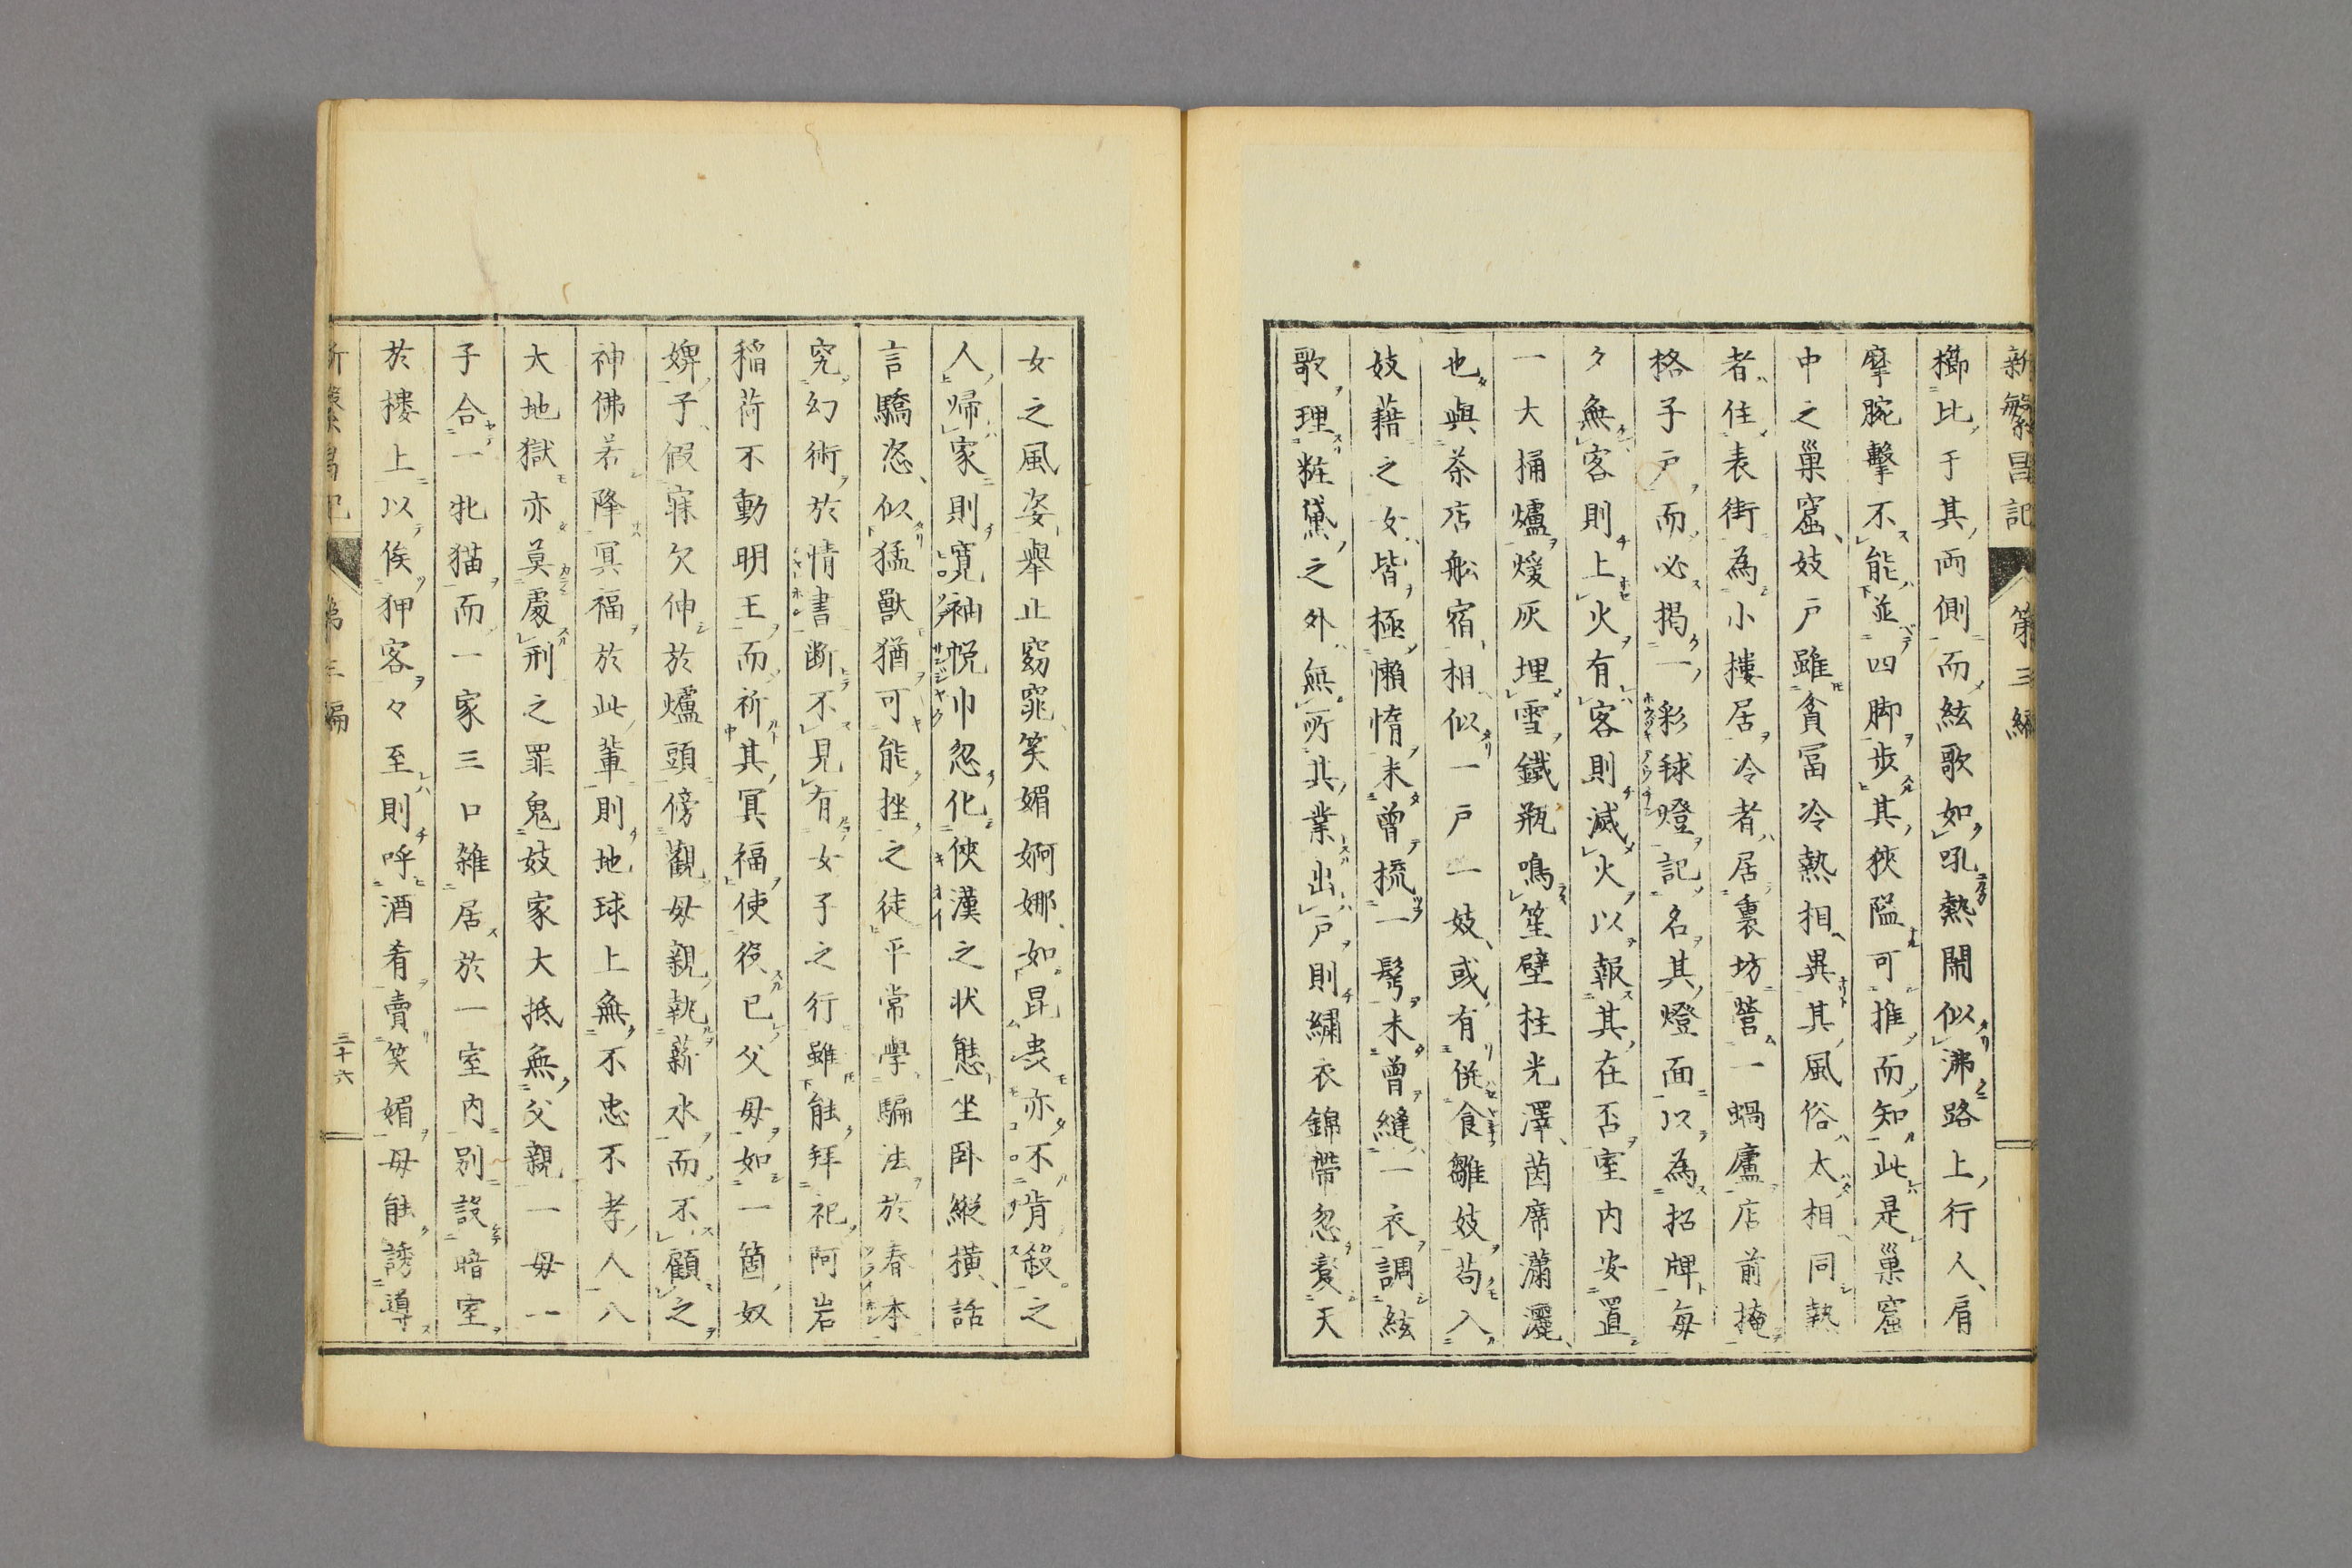 新繁昌記 第三編
櫛比于其両側而絃歌如吼熱閙似沸路上行人肩
摩腕撃不能並四脚歩其狹隘可推而知此是巣窟
中之巣窟妓戸雖貧冨冷熱相異其風俗太相同熱
者住表街為小楼居冷者居裏坊営一蝸廬店前掩
格子戸而必掲一彩毬燈記名其燈面以為招牌毎
夕無客則上火有客則滅火以報其在否室内安置
一大桶爐煖灰埋雪鐵瓶鳴笙壁柱光澤茵席瀟灑
也與茶店舩宿相似一戸一妓或有併食雛妓苟入
妓藉之女皆極懶惰未曽梳一髩未曽縫一衣調絃
歌理粧黛之外無所其業出戸則繍衣錦帶忽変天
女之風姿舉止窈窕笑媚婀娜如昆虫亦不肯殺之
人帰家則寛袖帨巾忽化俠漢之状態坐卧縦横話
言驕恣似猛獣猶可能挫之徒平常學騙法於春本
究幻術於情書断不見有女子之行雖能拜祀阿岩
稲荷不動明王而祈其冥福使役已父母如一箇奴
婢子假寐欠伸於爐頭傍觀母親執薪水而不顧之
神佛若降冥福於此輩則地球上無不忠不孝人八
大地獄亦莫處刑之罪鬼妓家大抵無父親一母一
子合一牝猫而一家三口雑居於一室内別設暗室
於楼上以俟狎客々至則呼酒肴賣笑媚母能誘導
新繁昌記 第三編 三十六